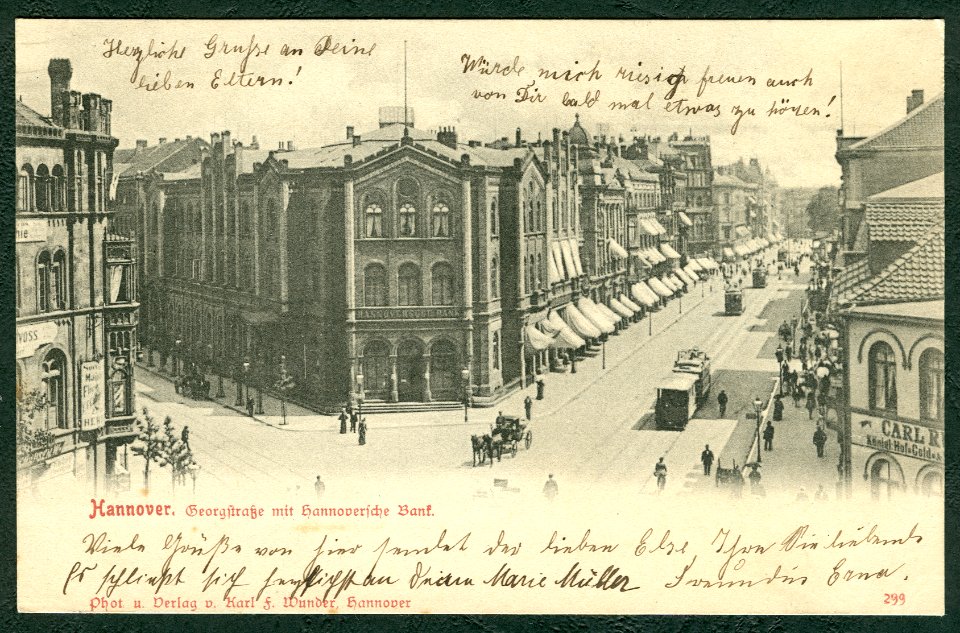 Herzliche Grüße an Deine
lieben Eltern!
Würde mich riesig freuen auch
von Dir bald mal etwas zu hören!
VOSS
HANNOVERSCHE BANK
CARL R
Königl. Hof. Gold
Hannover. Georgstraße mit Hannoversche Bank.
Viele Grüße von hier sendet der lieben Else Ihre Sie liebende
Es schließt sich herzlichst an Marie Müller Freundin Erna.
Phot u. Verlag v. Karl F. Wunder, Hannover
299